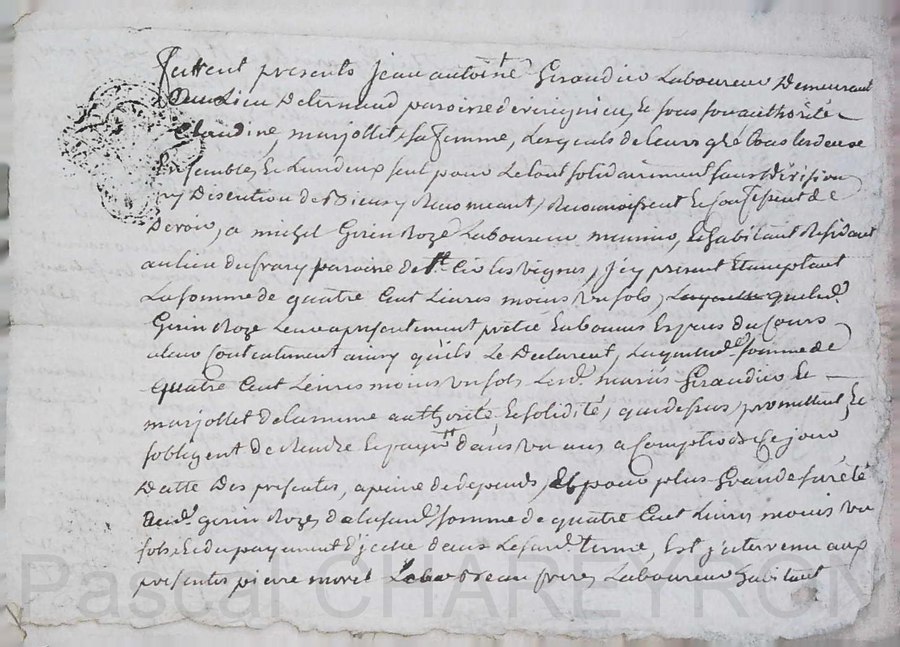 furent presents jean antoine Giraudier Laboureur Demeurant
au Lieu De ternaud paroisse de Et sous son authorité
Claudine marjollet sa femme, Lesquels de leurs gré tous les deux
Ensemble, Et Lun deux seul pour Le tout solidairement sans division
ny Discution de Biens y Renonceant, Reconnoissent Et Confessent de
Devoir, a michel Girin Roze Laboureur Et habitant Résidant
au lieu du frary paroisse de St. Cir les vignes, jcy present Et acceptant
La somme de quatre Cent Livres moins un sols, Laquelle quelud.
Girin Roze Leur a presentement prêtée En bonnes Espèces du Cours
a leur Contentement ainsy quils Le Declarent, Laquelled.e somme de
quatre Cent Livres moins un sols Lesd. mariés Giraudier Et
marjollet de la meme authorité Et solidité, que dessus promettent Et
sobligent de Rendre Et payer dans un ans a Compter de Ce jour
Datte Des presentes, a peine de depends, Et pour plus Grande sureté
aud. girin Roze, de la susd. somme de quatre Cent Livres moins un
sols, Et du payement d'jcelle dans Le susd. terme, Est j'ntervenu aux
presentes pierre morel Beau frere, Laboureur habitant
Pascal CHAREYRON